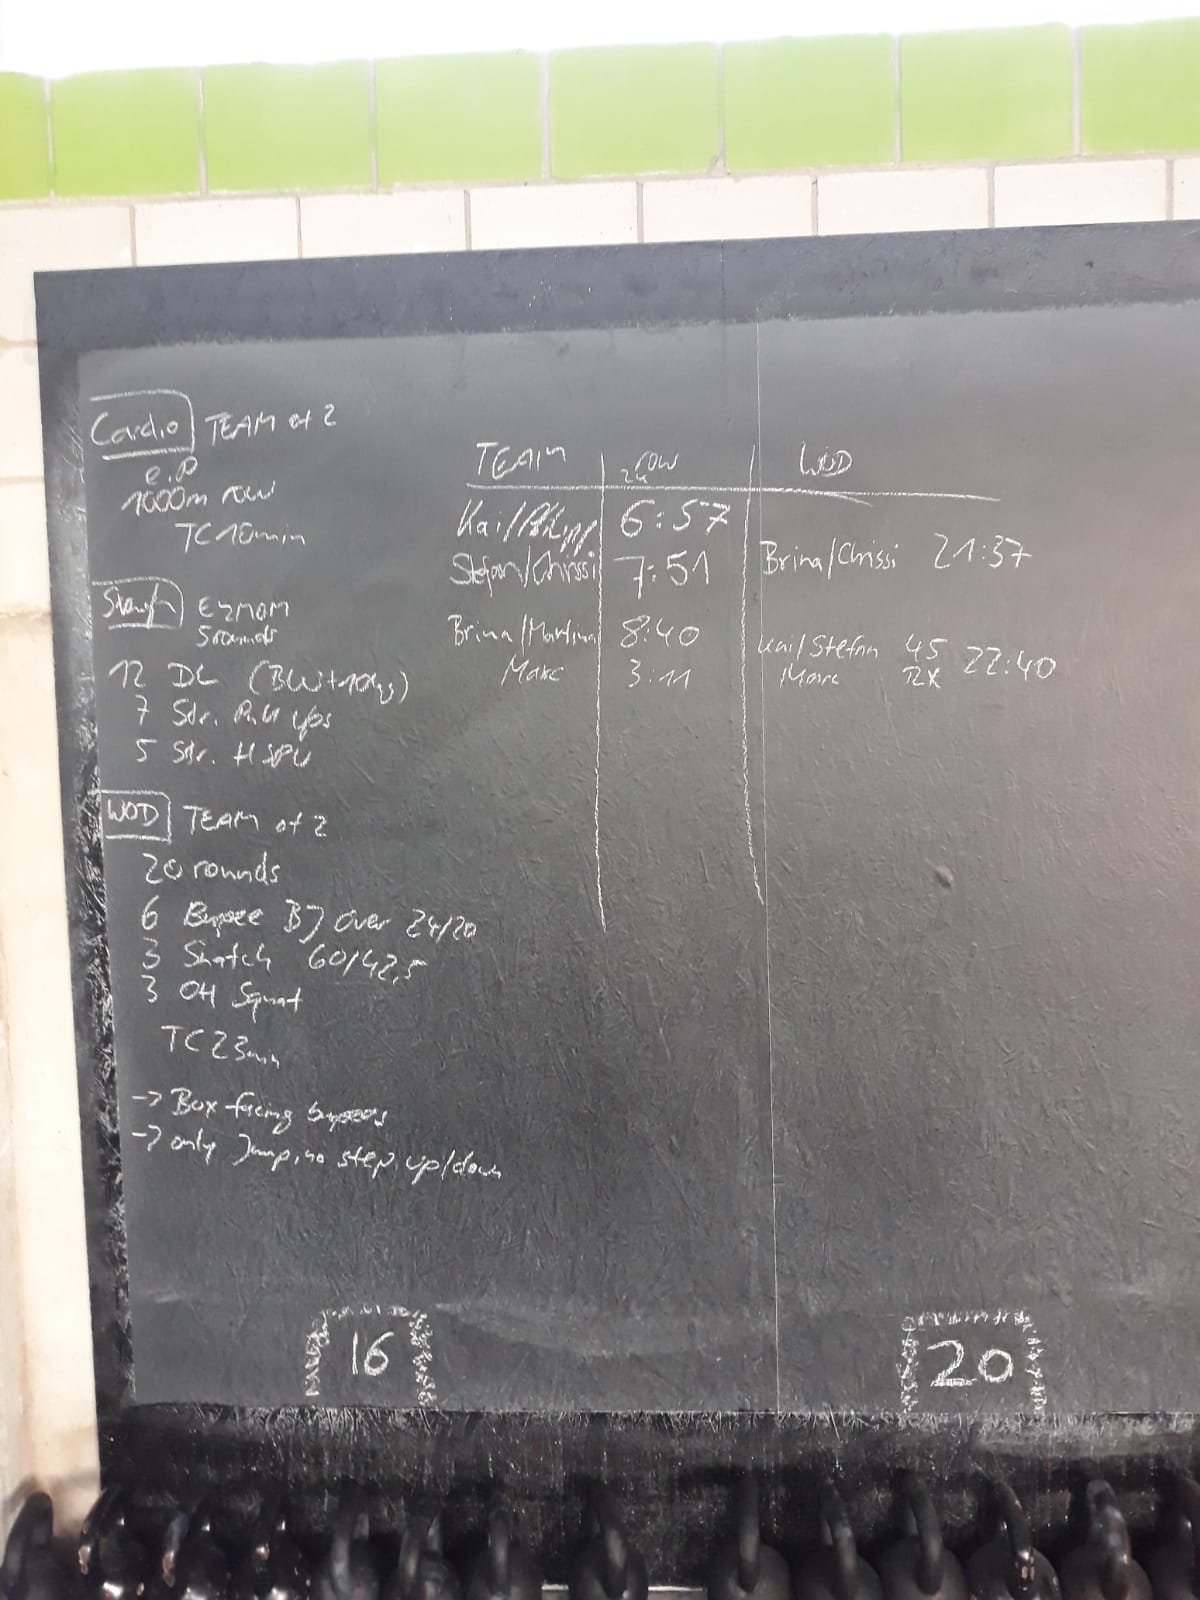 Cardio TEAM of 2
e.P
1000m row
TC 10min
Strength E2MOM
5 rounds
12 DL (BW+10kg)
7 Str. Pull ups
5 Str. HSPU
WOD TEAM of 2
20 rounds
6 Burpee BJ over 24/20
3 Snatch 60/42,5
3 OH Squat
TC 23min
-> Box facing burpees
-> only Jump, no step up/down
TEAM 2k row WOD
Kai/Philipp 6:57
Stefan/Chrissi 7:51 Brina/Chrissi 21:37
Brina/Martina 8:40 Kai/Stefan 45 22:40
Marc 3:11 Marc RX
16 20